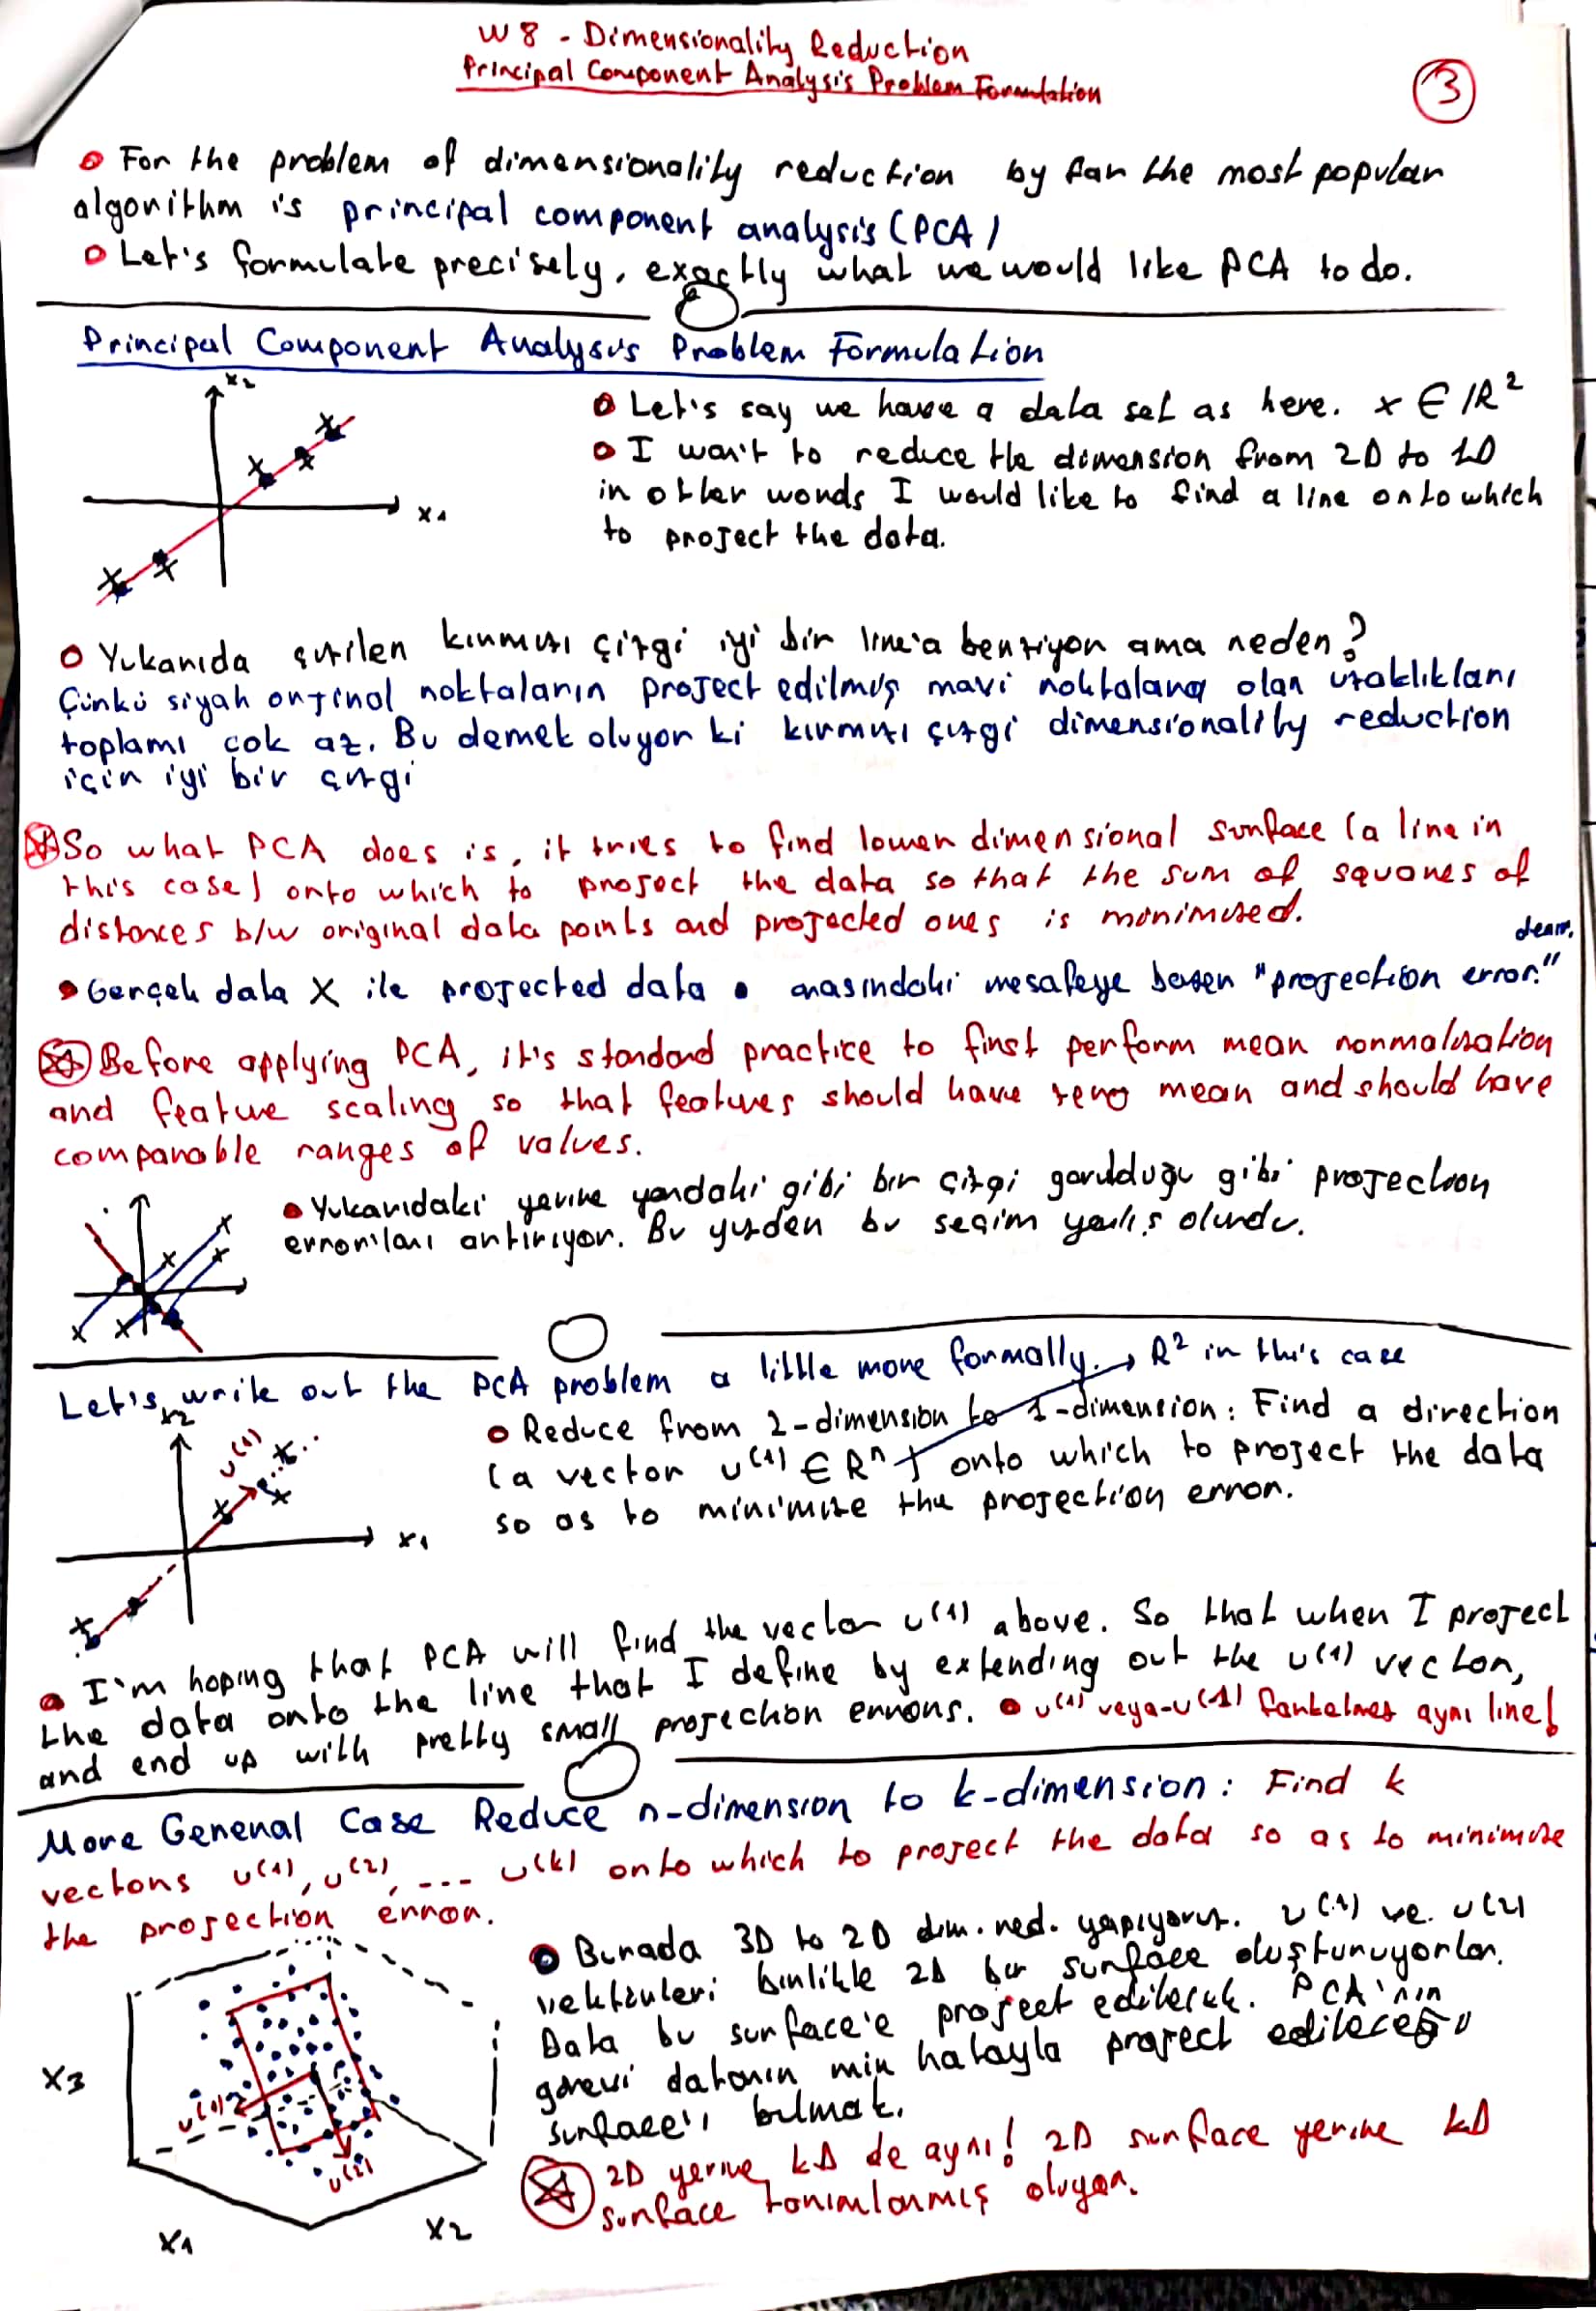 W8 - Dimensionality Reduction
Principal Component Analysis Problem Formulation
3
For the problem of dimensionality reduction by far the most popular
algorithm is principal component analysis (PCA)
Let's formulate precisely, exactly what we would like PCA to do.
Principal Component Analysis Problem Formulation
x2
x1
Let's say we have a data set as here. x ∈ IR²
I want to reduce the dimension from 2D to 1D
in other words I would like to find a line onto which
to project the data.
Yukarıda çizilen kırmızı çizgi iyi bir line'a benziyor ama neden?
Çünkü siyah orjinal noktaların project edilmiş mavi noktalara olan uzaklıkları
toplamı çok az. Bu demek oluyor ki kırmızı çizgi dimensionality reduction
için iyi bir çizgi
So what PCA does is, it tries to find lower dimensional surface (a line in
this case) onto which to project the data so that the sum of squares of
distances b/w original data points and projected ones is minimized.
Gerçek data X ile projected data • arasındaki mesafeye bazen "projection error." denir.
Before applying PCA, it's standard practice to first perform mean normalization
and feature scaling so that features should have zero mean and should have
comparable ranges of values.
Yukarıdaki yerine yandaki gibi bir çizgi görüldüğü gibi projection
error'ları artırıyor. Bu yüzden bu seçim yanlış olurdu.
Let's write out the PCA problem a little more formally. → R² in this case
x2
u(1)
x1
Reduce from 2-dimension to 1-dimension: Find a direction
(a vector u(1) ∈ Rⁿ) onto which to project the data
so as to minimize the projection error.
I'm hoping that PCA will find the vector u(1) above. So that when I project
the data onto the line that I define by extending out the u(1) vector,
and end up with pretty small projection errors. u(1) veya -u(1) farketmez aynı line!
More General Case Reduce n-dimension to k-dimension: Find k
vectors u(1), u(2), --- u(k) onto which to project the data so as to minimize
the projection error.
Burada 3D to 2D dim. red. yapıyoruz. u(1) ve u(2)
vektörleri birlikte 2D bir surface oluşturuyorlar.
Data bu surface'e project edilecek. PCA'nın
görevi datanın min hatayla project edileceği
surface'i bulmak.
2D yerine kD de aynı! 2D surface yerine kD
surface tanımlanmış oluyor.
x3
u(1)
u(2)
x1
x2